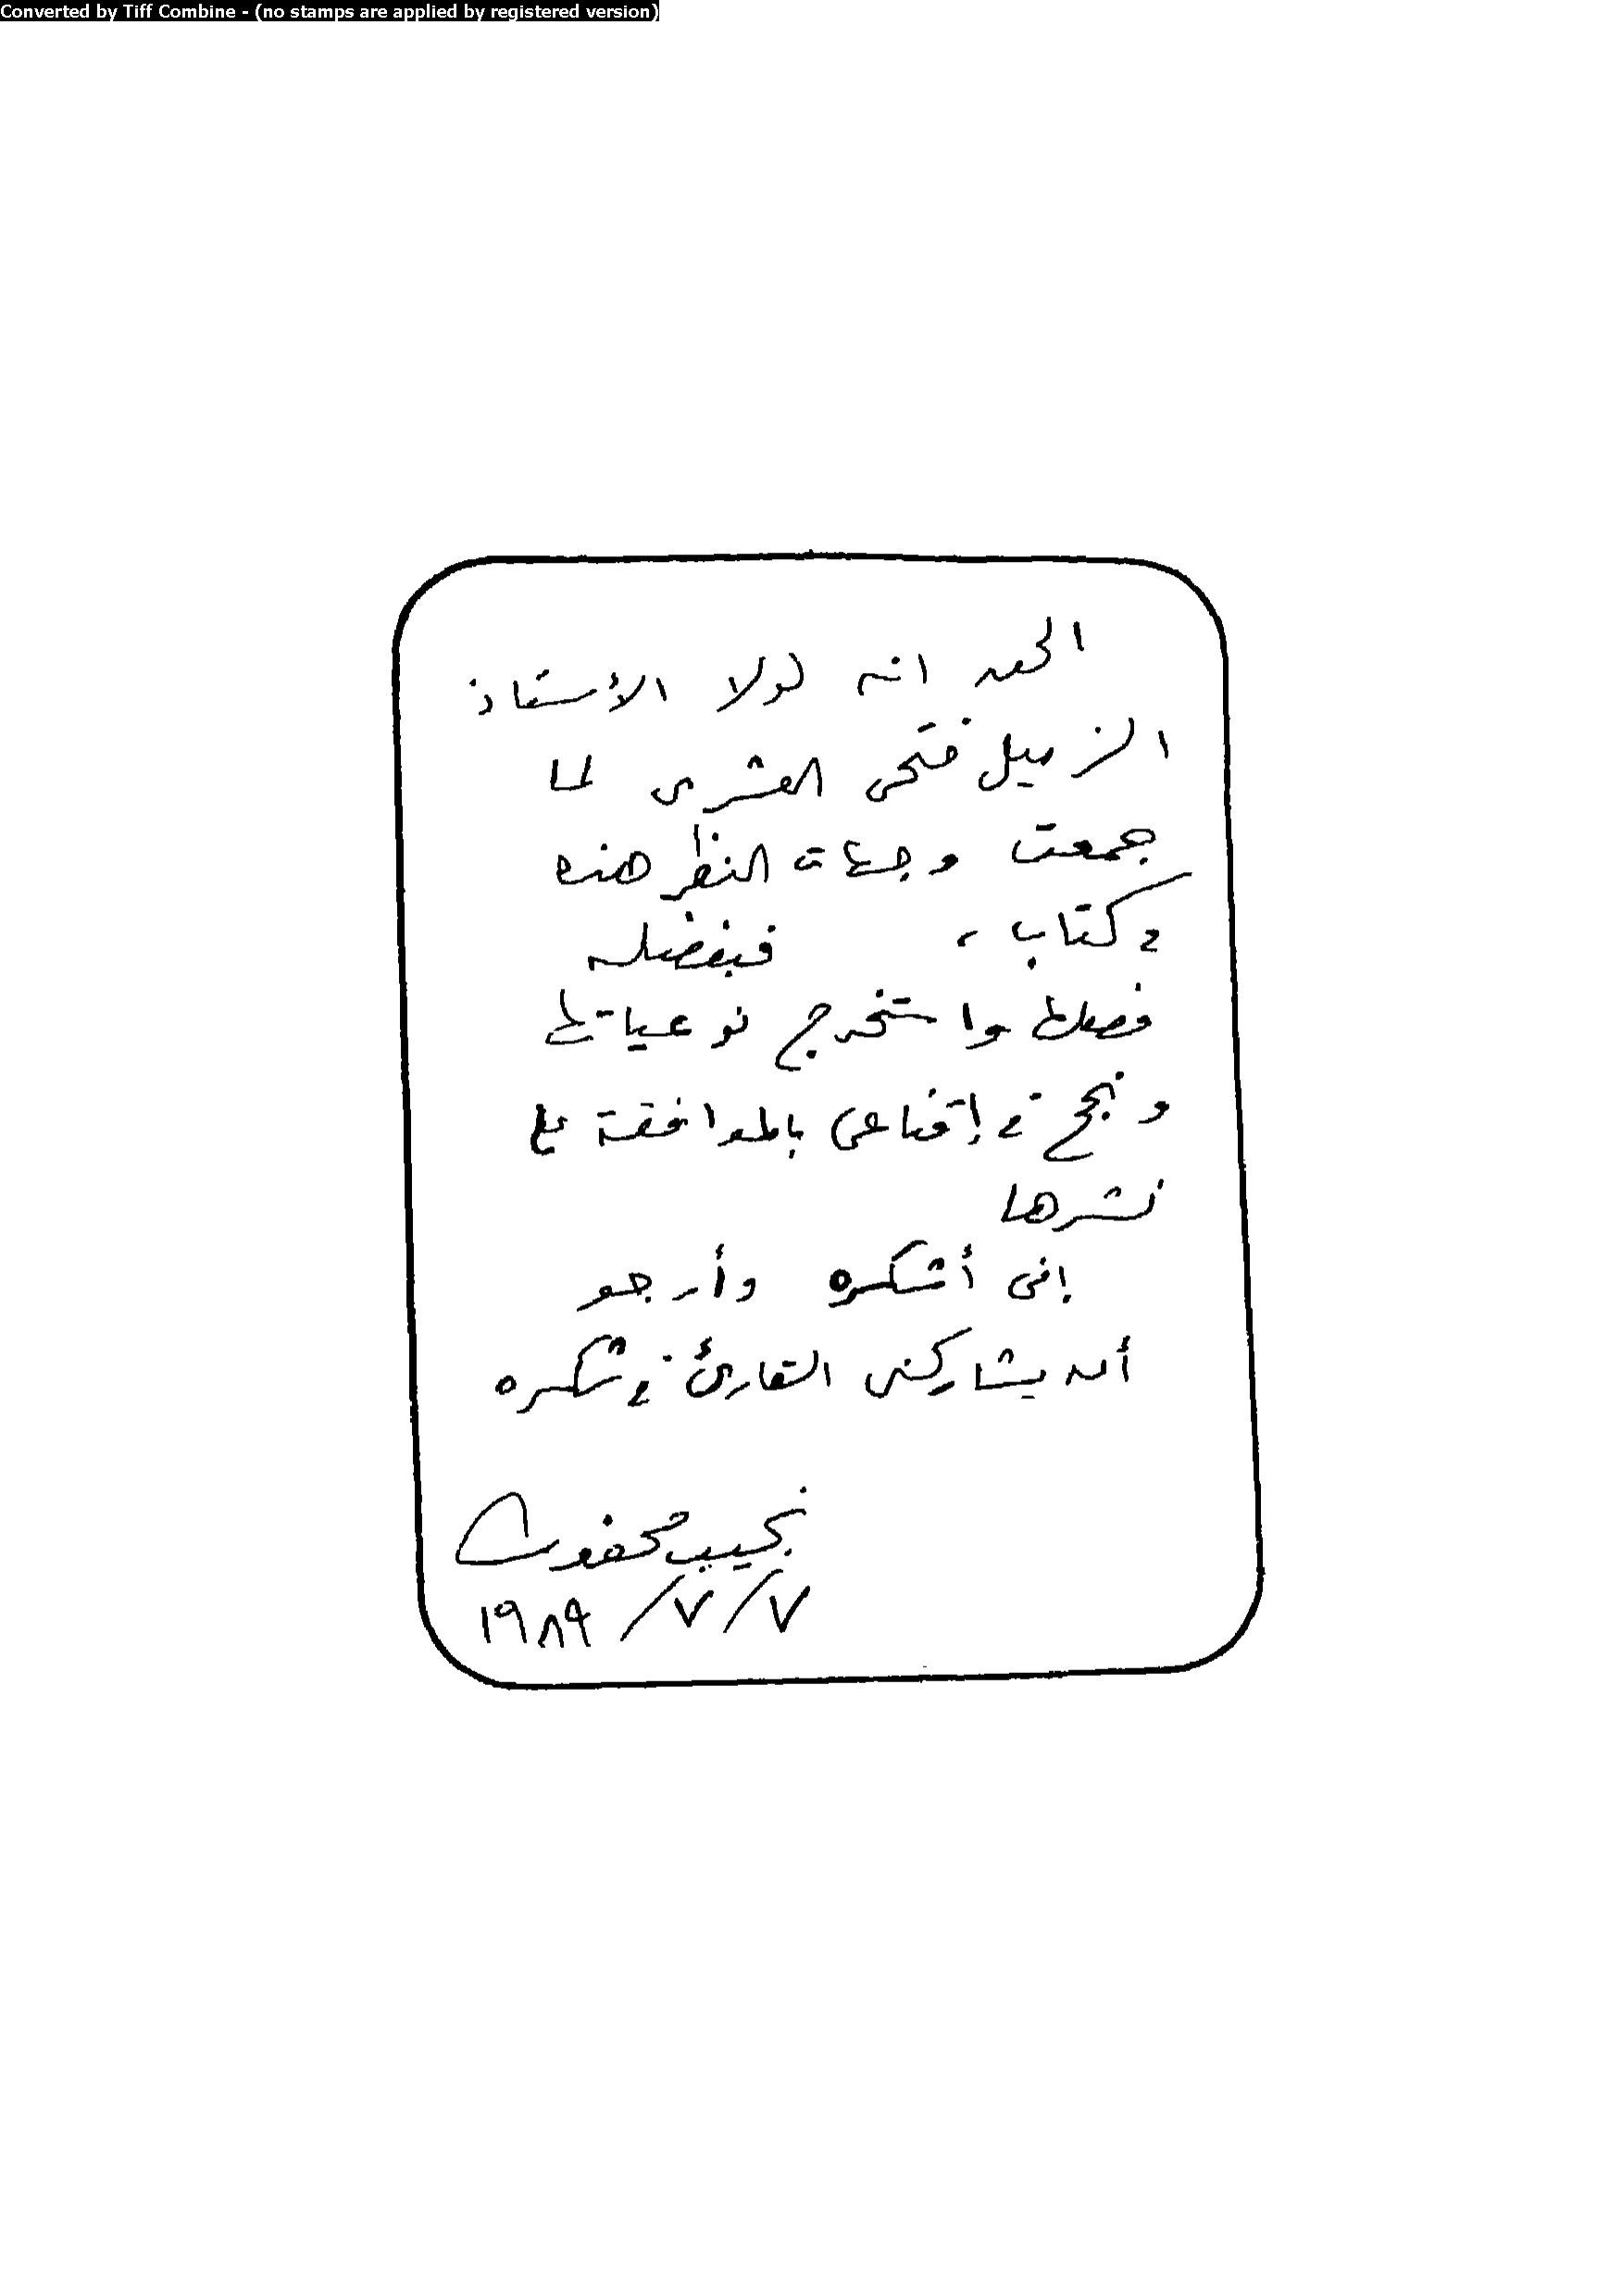 Converted by Tiff Combine - (no stamps are applied by registered version)
الحق انه لولا الأستاذ
الزميل فتحى العشرى لما
جمعت وجهات النظر هذه
فى كتاب، فبفضله
فصلها واستخرج نوعياتها
ونجح فى إقناعى بالموافقة على
نشرها
إنى أشكره وأرجو
أن يشاركنى القارئ فى شكره
نجيب محفوظ
١٩٨٩/٧/٧